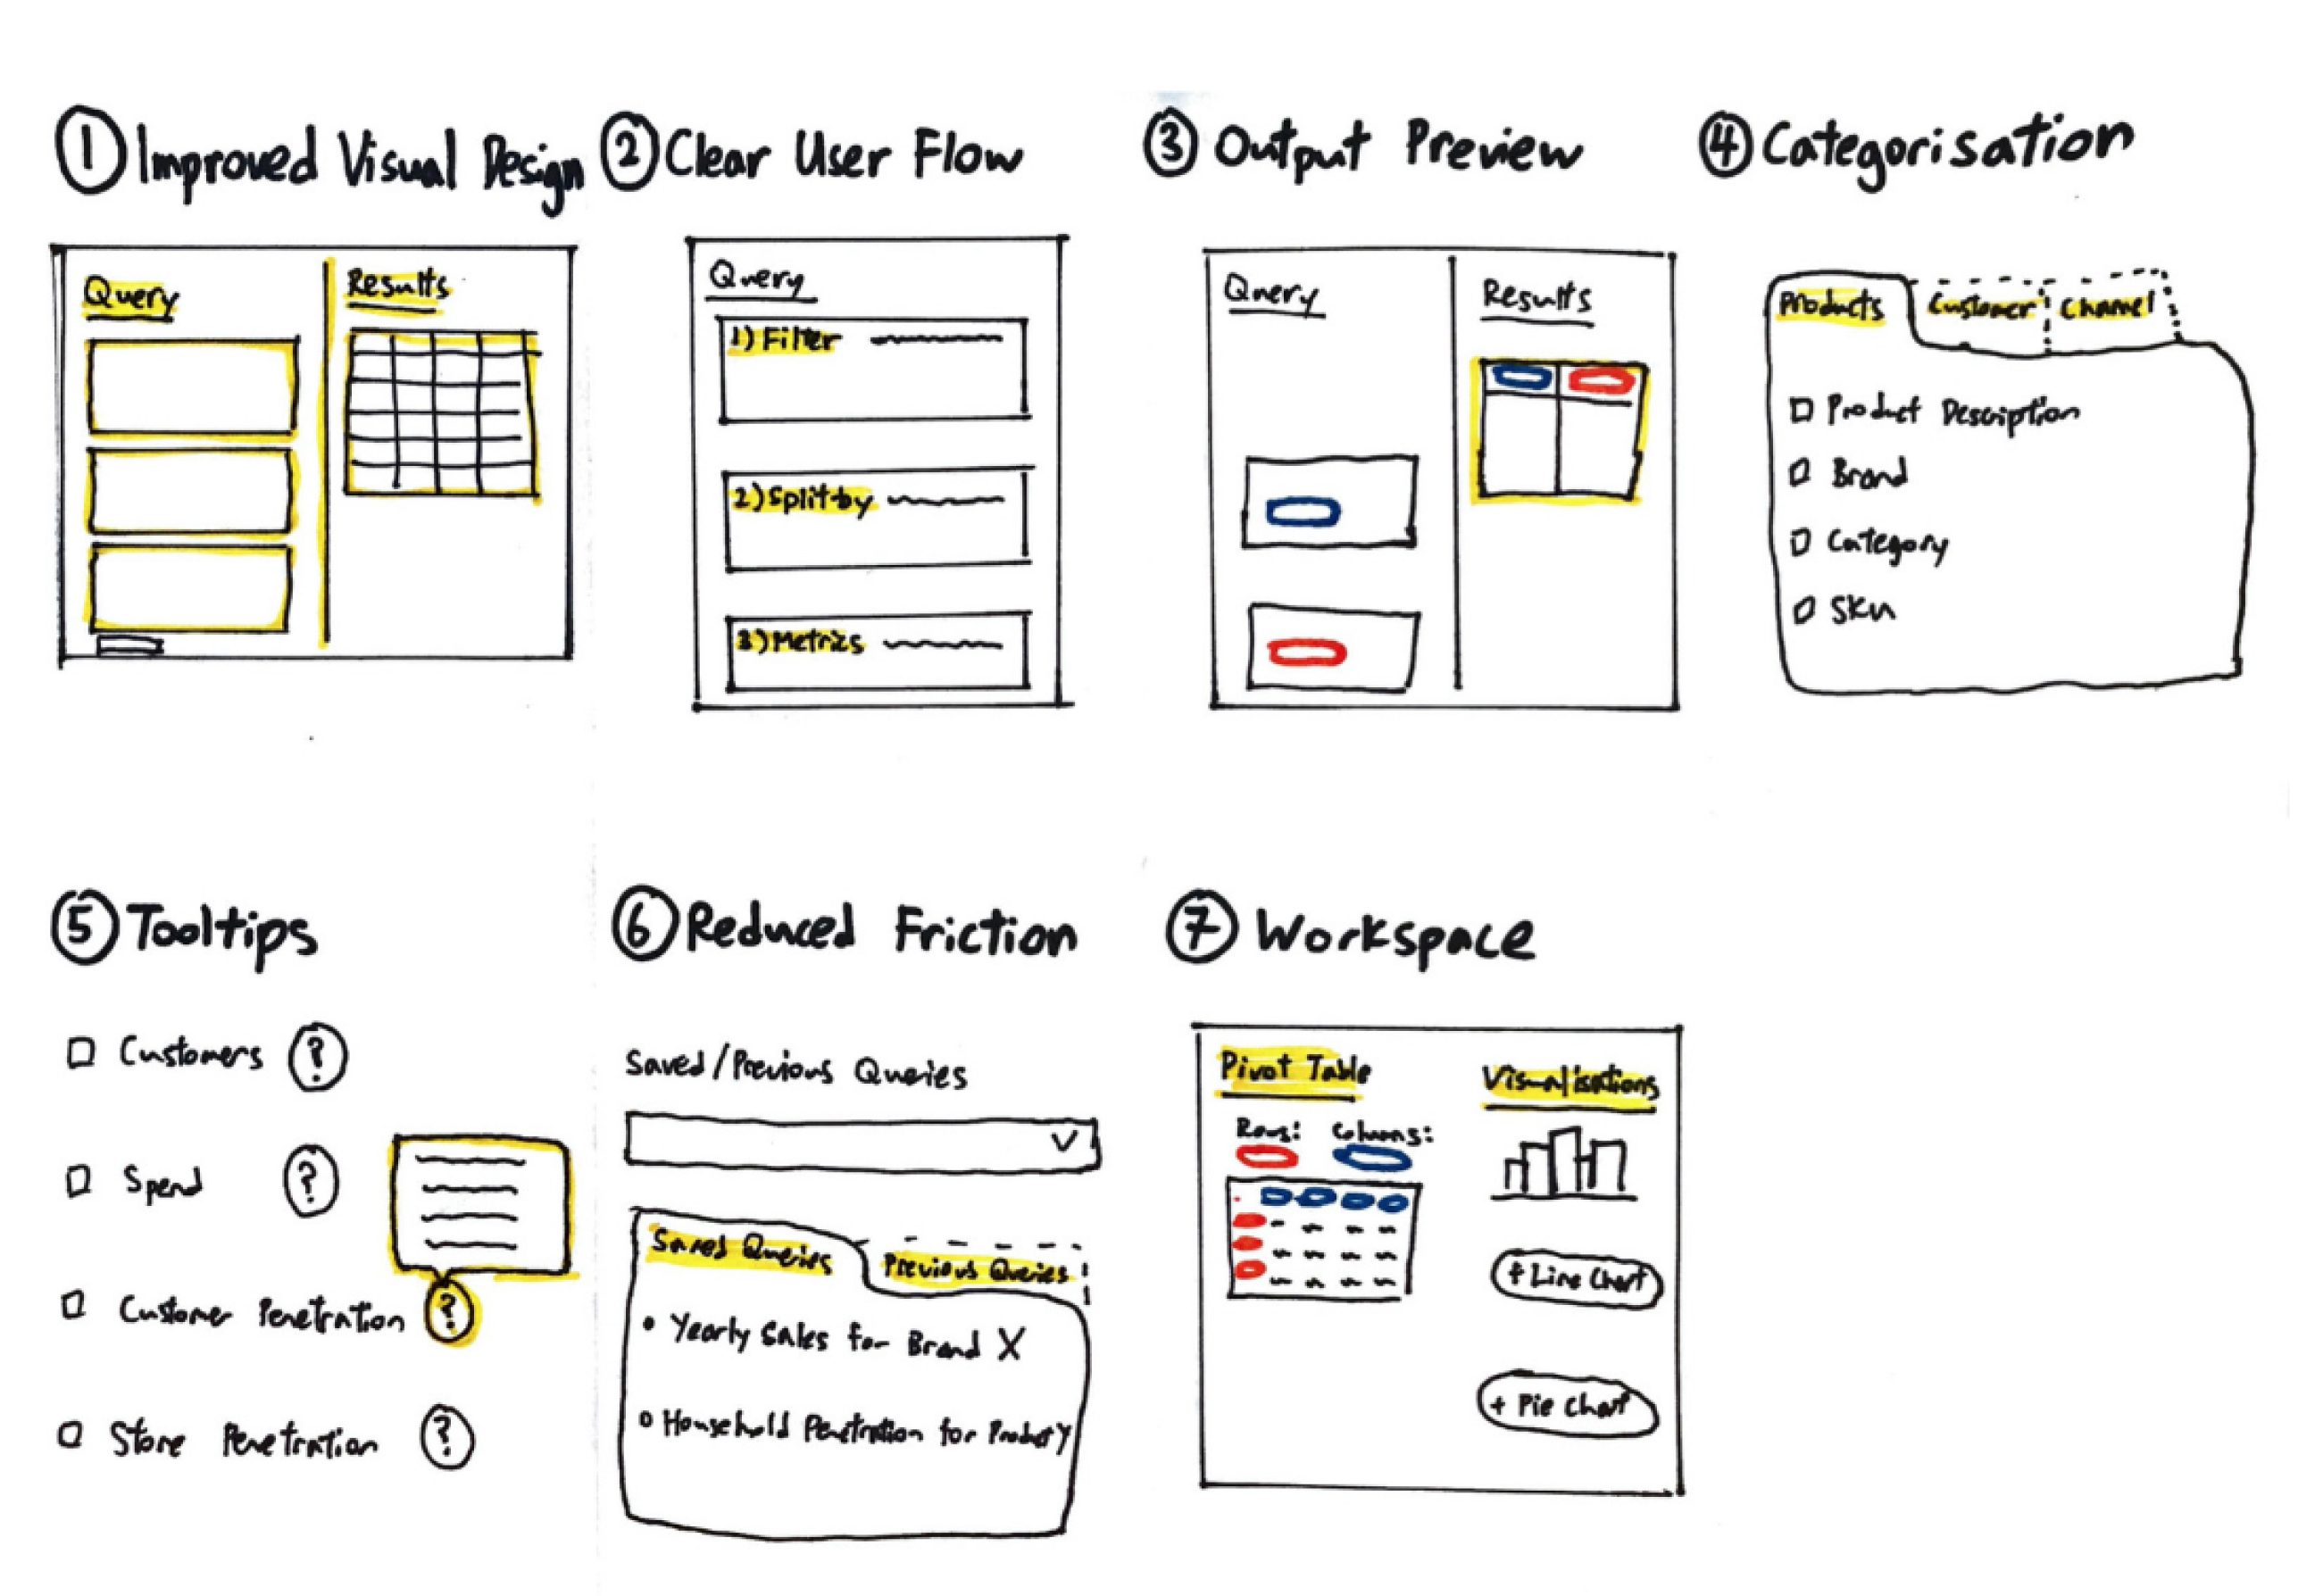 ① Improved Visual Design
Query
Results
② Clear User Flow
Query
1) Filter
2) Split by
3) Metrics
③ Output Preview
Query
Results
④ Categorisation
Products
Customer
Channel
Product Description
Brand
Category
SKU
⑤ Tooltips
Customers ?
Spend ?
Customer Penetration ?
Store Penetration ?
⑥ Reduced Friction
Saved/Previous Queries
Saved Queries
Previous Queries
• Yearly Sales for Brand X
• Household Penetration for Product Y
⑦ Workspace
Pivot Table
Rows: Columns:
Visualisations
+ Line Chart
+ Pie Chart